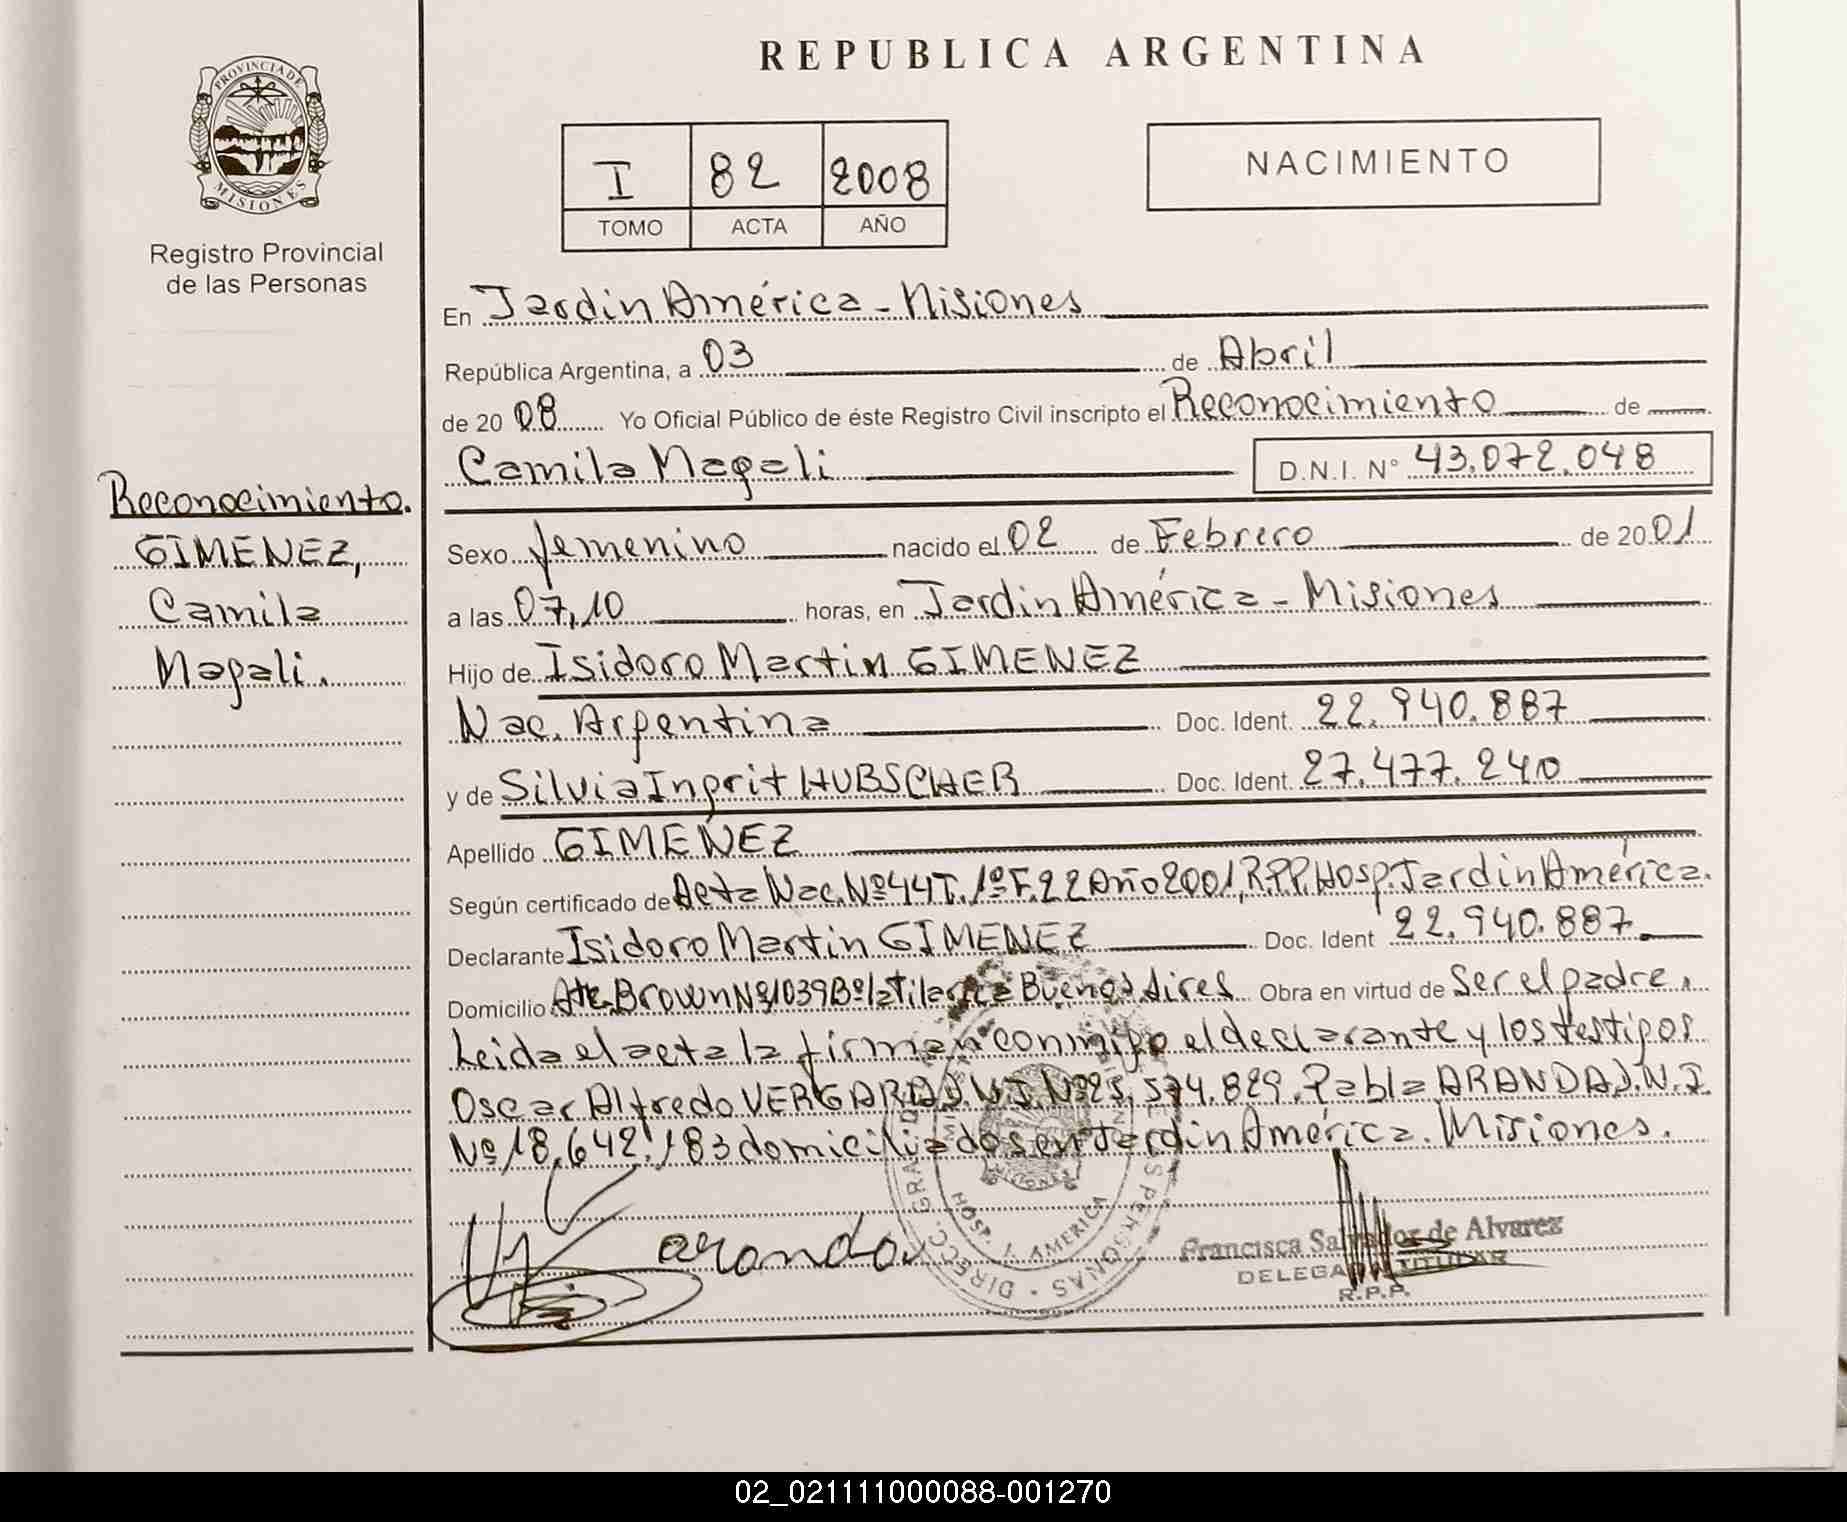 REPUBLICA ARGENTINA
PROVINCIA DE
MISIONES
Registro Provincial
de las Personas
I 82 2008
TOMO ACTA AÑO
NACIMIENTO
En Jardin América - Misiones
República Argentina, a 03 de Abril
de 20 08 Yo Oficial Público de éste Registro Civil inscripto el Reconocimiento de
Camila Magali D.N.I. N° 43.072.048
Reconocimiento.
GIMENEZ,
Camila
Magali.
Sexo femenino nacido el 02 de Febrero de 2001
a las 07,10 horas, en Jardin América - Misiones
Hijo de Isidoro Martin GIMENEZ
Nac. Argentina Doc. Ident. 22.940.887
y de Silvia Ingrit HUBSCHER Doc. Ident. 27.477.240
Apellido GIMENEZ
Según certificado de Acta Nac. Nº 44 T. 1º F. 22 Año 2001, R.P.P. Hosp. Jardin América.
Declarante Isidoro Martin GIMENEZ Doc. Ident 22.940.887
Domicilio Ate. Brown Nº 1039 Bº la Tilarca Buenos Aires Obra en virtud de Ser el padre.
Leida el acta la firman conmigo el declarante y los testigos
Oscar Alfredo VERGARA D.N.I. Nº 25.574.829. Pabla ARANDA D.N.I.
Nº 18.642.183 domiciliados en Jardin América. Misiones.
aranda
HOSP. J. AMERICA
Francisca Salvador de Alvarez
DELEGADA TITULAR
R.P.P.
02_021111000088-001270